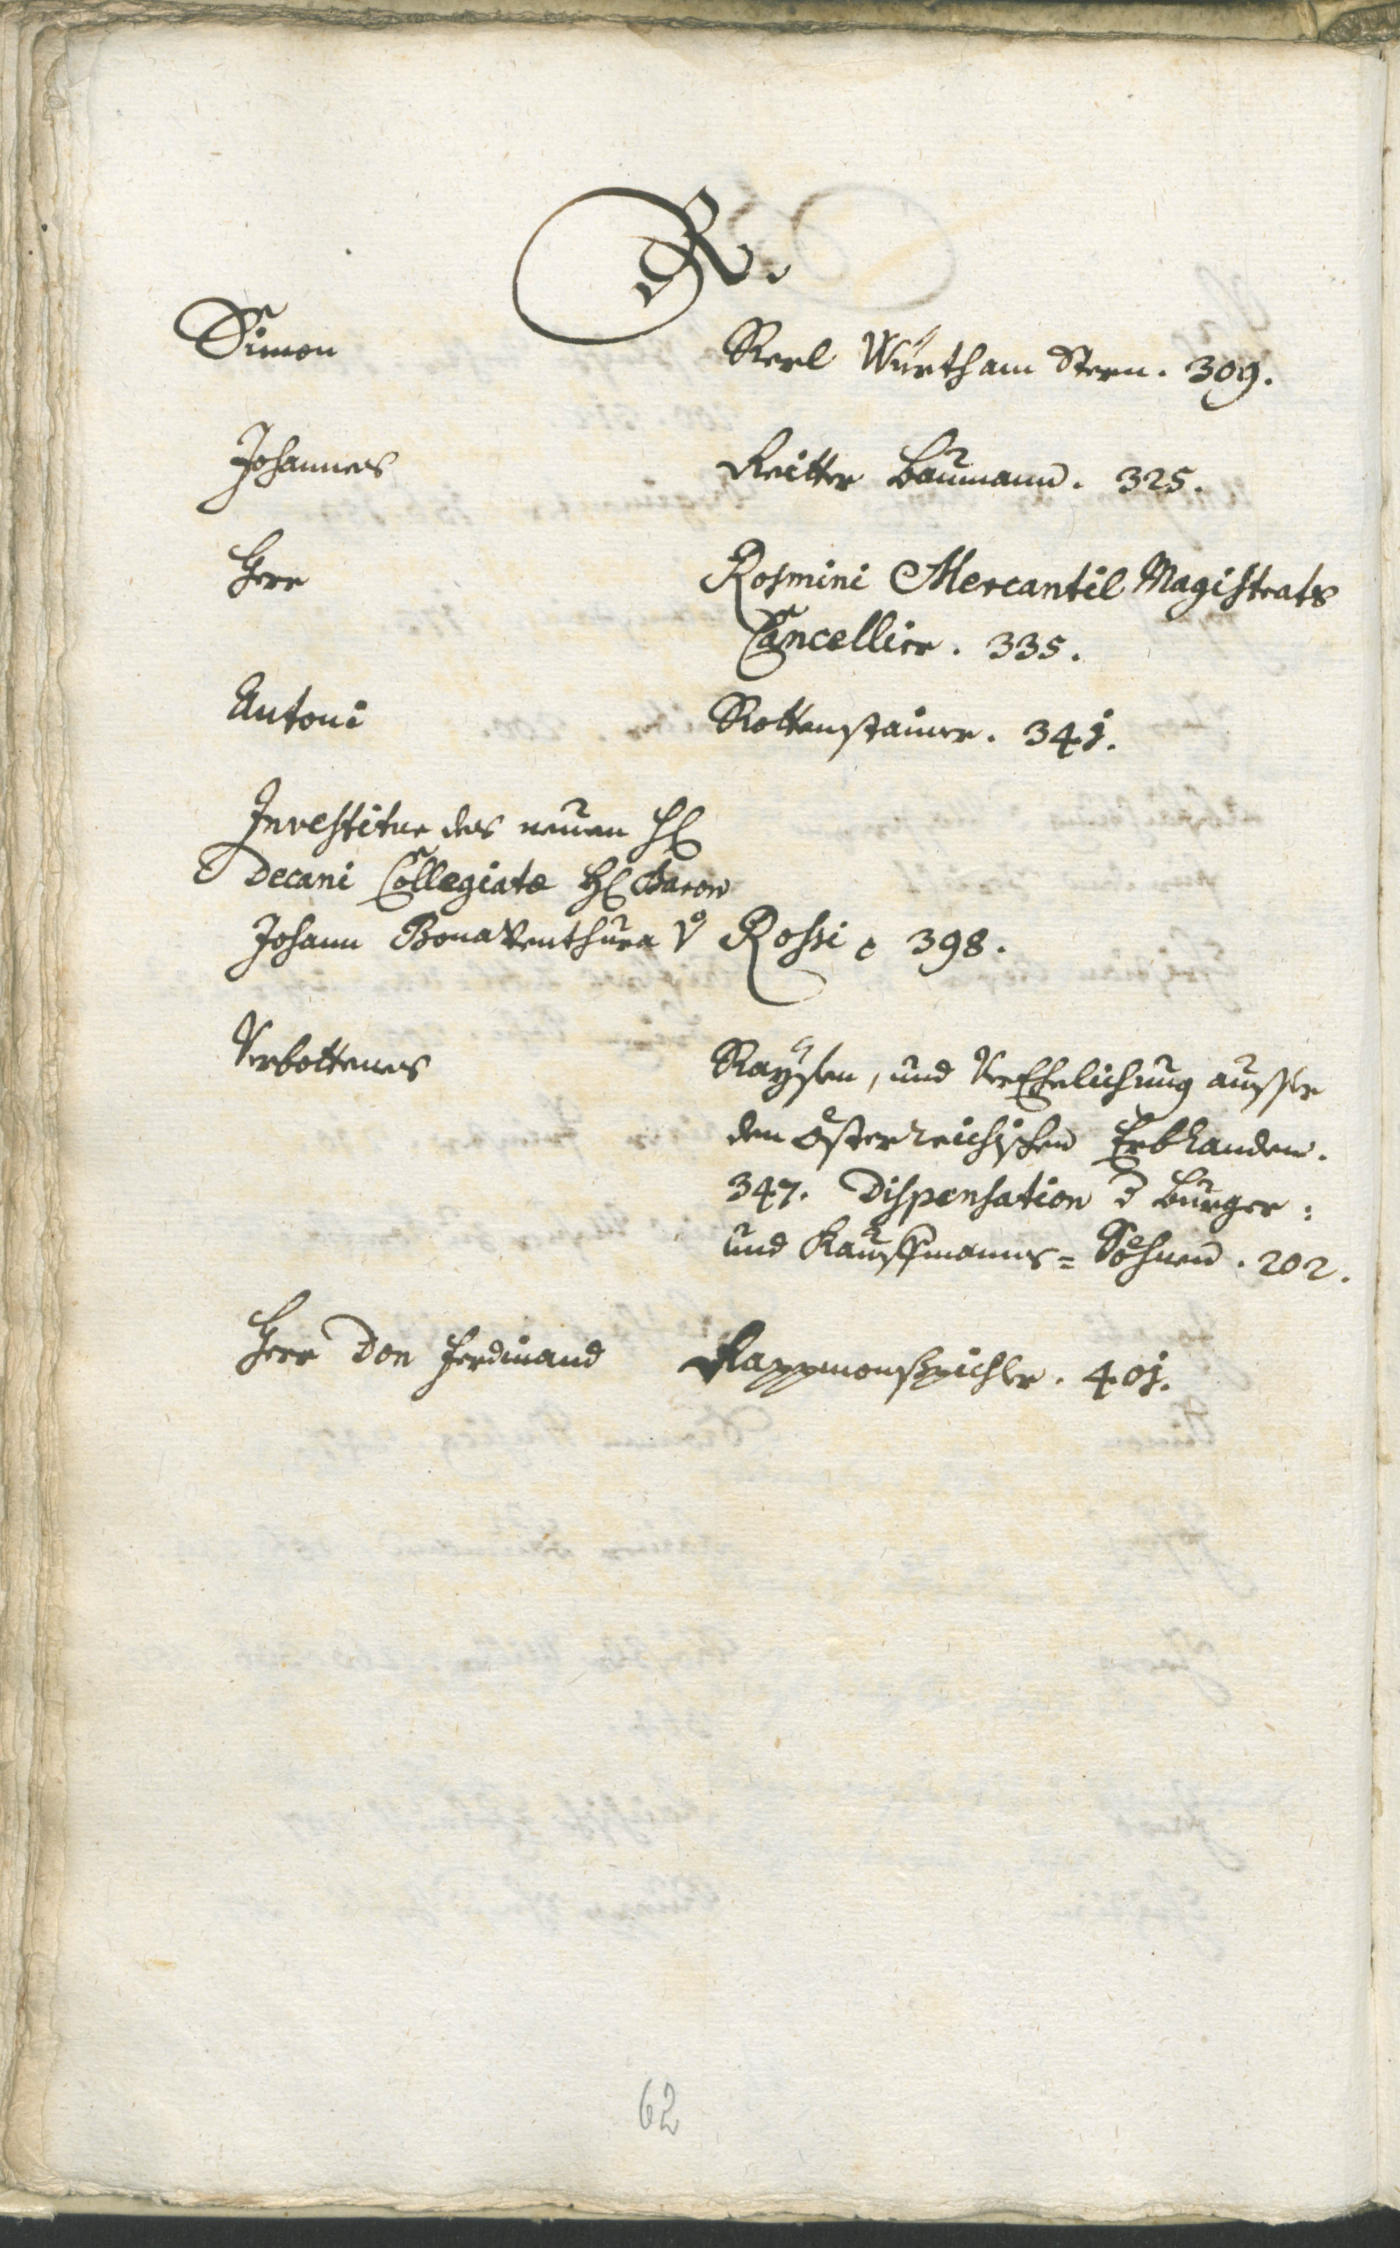 R.
Simon Rerl Würth am Stern. 309.
Johannes Reitter Baumann. 325.
Herr Rosmini Mercantil Magistrats
Cancellier. 335.
Antoni Rottenstainer. 341.
Investitur des neuen H
Decani Collegiatæ H Baron
Johann Bonaventhura V Rossi 398.
Verbottenes Raÿsen, und VerEhelichung ausser
den österreichischen Erblanden.
347. Dispensation d Burger:
und Kauffmanns= Söhnen. 202.
Herr Don Ferdinand Kappmonspichler. 401.
62